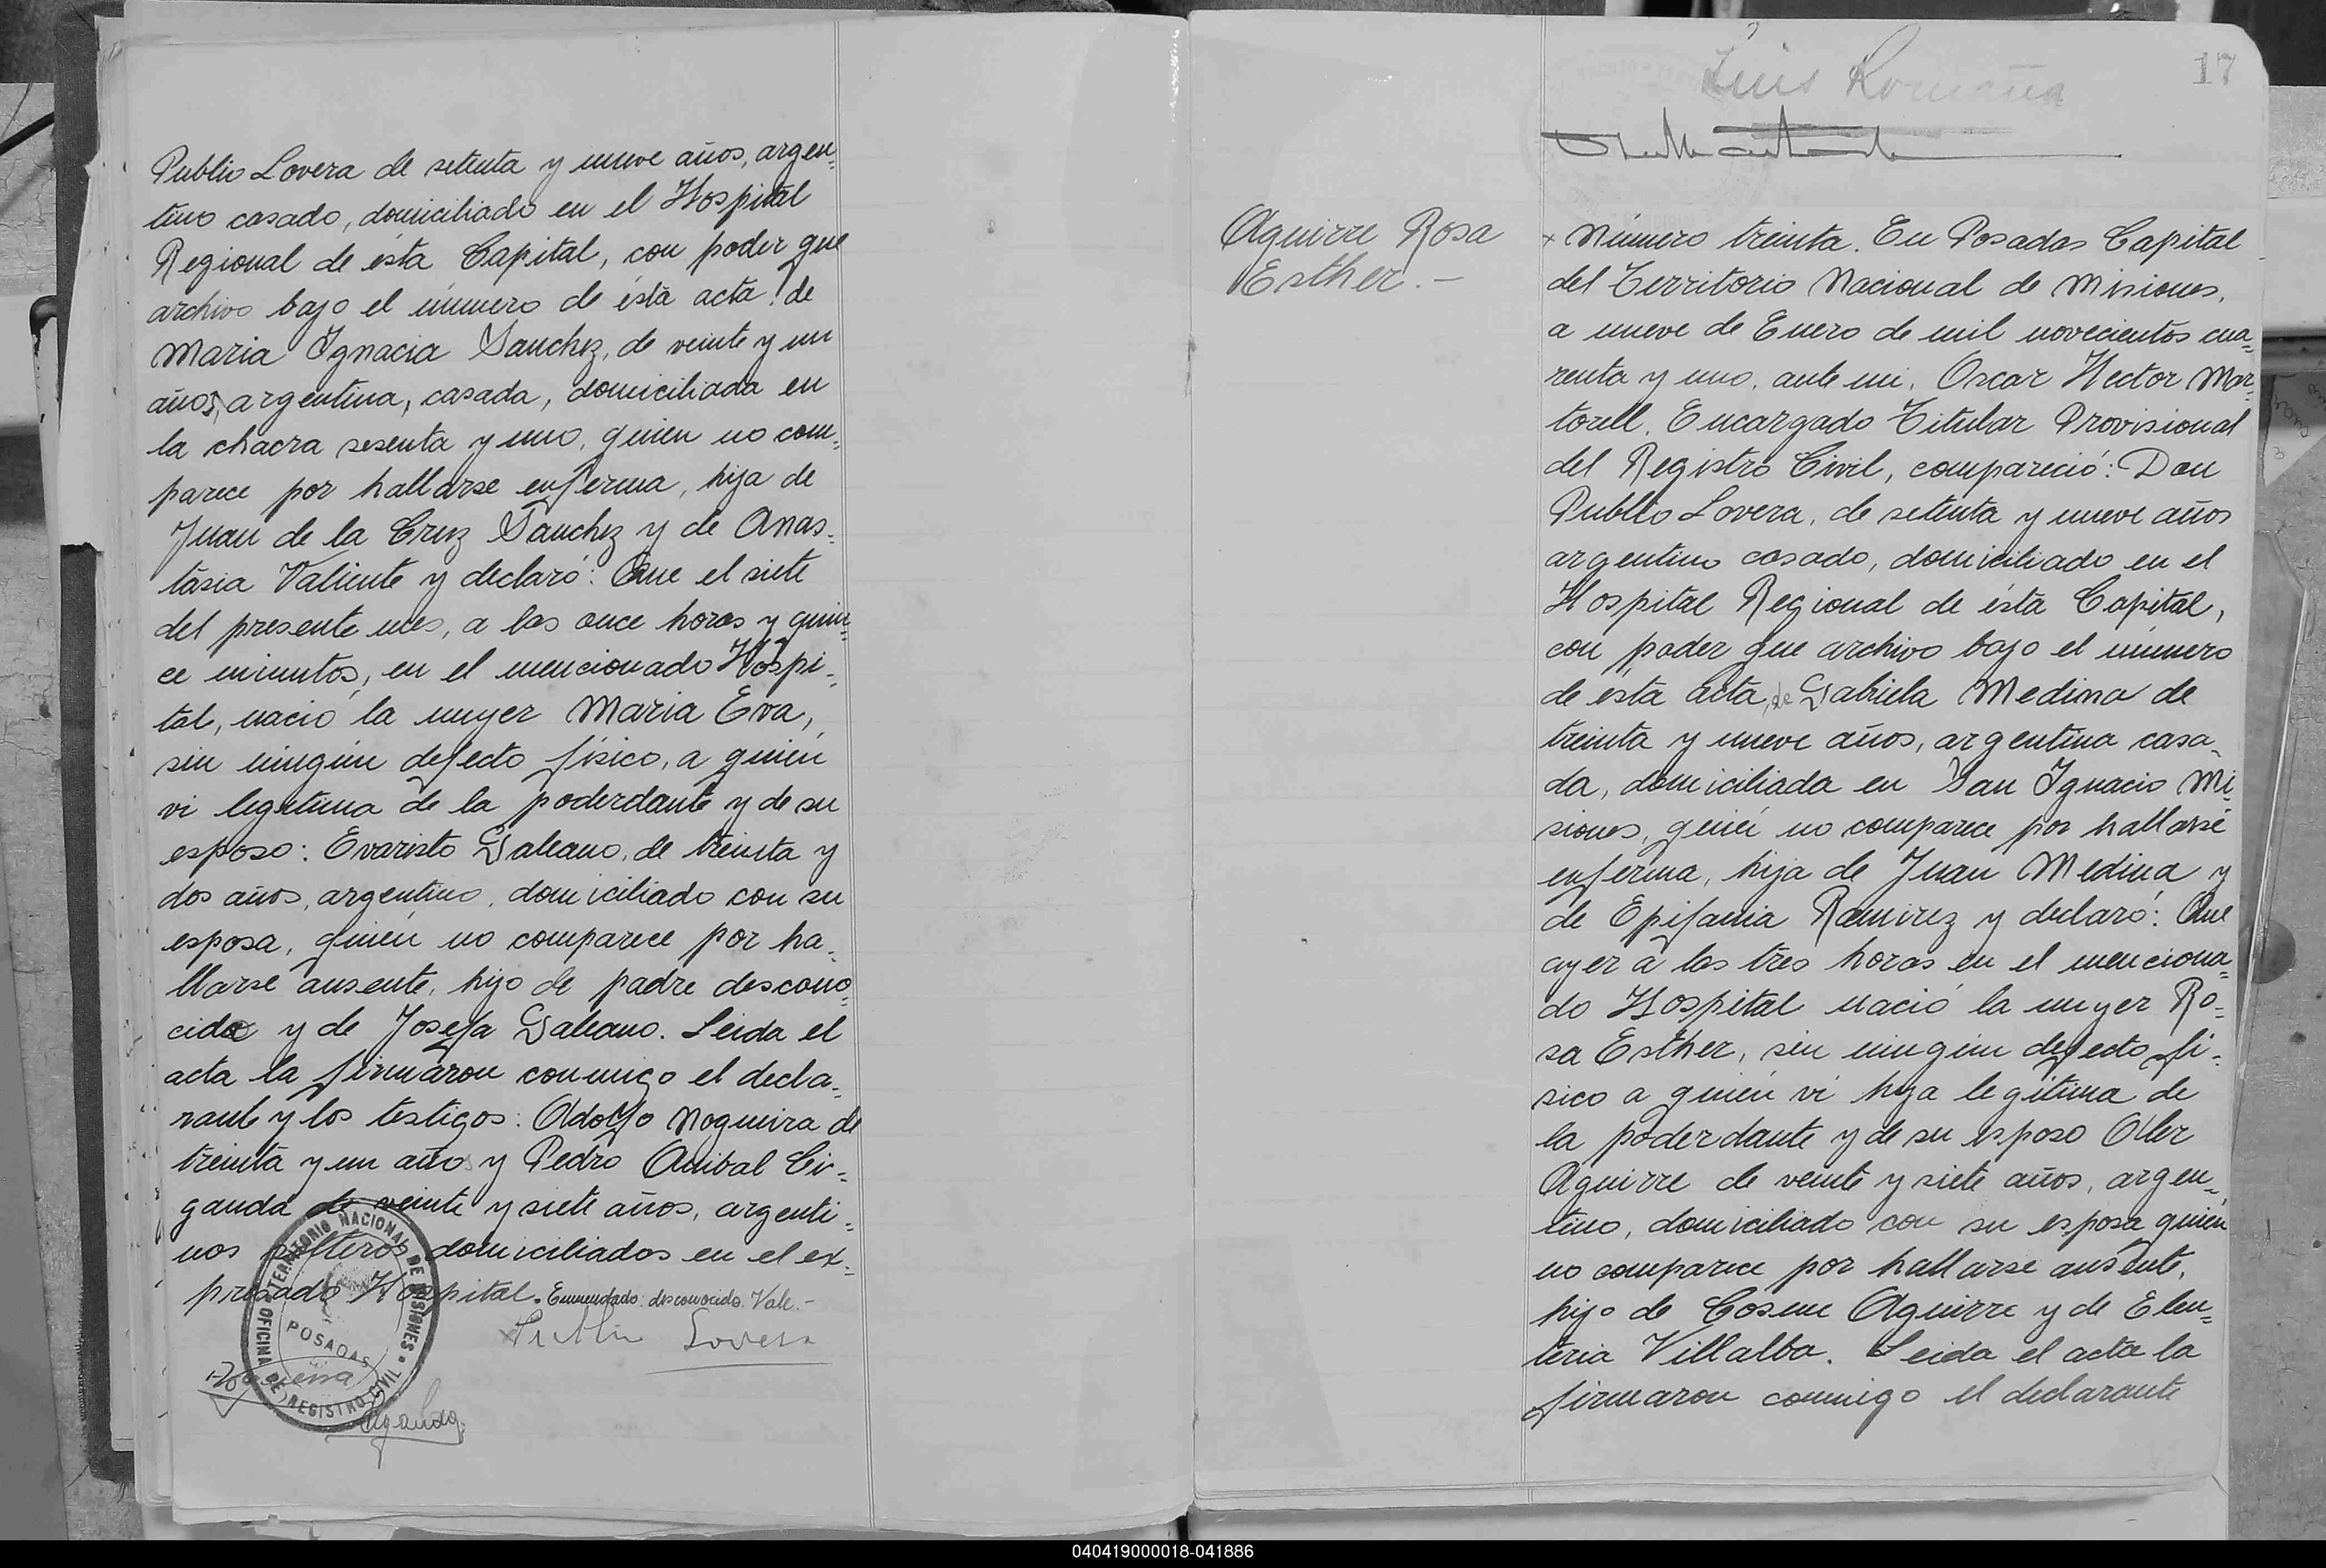 Publio Lovera de setenta y nueve años, argen-
tino casado, domiciliado en el Hospital
Regional de ésta Capital, con poder que
archivo bajo el número de ésta acta, de
Maria Ignacia Sanchez, de veinte y un
años, argentina, casada, domiciliada en
la chacra sesenta y uno, quien no com-
parece por hallarse enferma, hija de
Juan de la Cruz Sanchez y de Anas-
tasia Valiente y declaró: Que el siete
del presente mes, a las once horas y quin-
ce minutos, en el mencionado Hospi-
tal, nació la mujer Maria Eva,
sin ningún defecto físico, a quién
vi legitima de la poderdante y de su
esposo: Evaristo Galeano, de treinta y
dos años, argentino, domiciliado con su
esposa, quién no comparece por ha-
llarse ausente, hijo de padre descono-
cido y de Josefa Galeano. Leida el
acta la firmaron conmigo el decla-
rante y los testigos: Adolfo Nogueira de
treinta y un años y Pedro Anibal Cir-
ganda de veinte y siete años, argenti-
nos solteros domiciliados en el ex-
presado Hospital. Enmendado: desconocido. Vale.-
Publio Lovera
TERRITORIO NACIONAL DE MISIONES
OFICINA DE REGISTRO CIVIL
POSADAS
17
Luis Romaña
Aguirre Rosa
Esther.-
Número treinta. En Posadas Capital
del Territorio Nacional de Misiones,
a nueve de Enero de mil novecientos cua-
renta y uno, ante mi, Oscar Hector Mar-
torell, Encargado Titular Provisional
del Registro Civil, compareció: Don
Publio Lovera, de setenta y nueve años
argentino casado, domiciliado en el
Hospital Regional de ésta Capital,
con poder que archivo bajo el número
de ésta acta, de Gabriela Medina de
treinta y nueve años, argentina casa-
da, domiciliada en San Ignacio Mi-
siones, quién no comparece por hallarse
enferma, hija de Juan Medina y
de Epifania Ramirez y declaró: Que
ayer a las tres horas en el menciona-
do Hospital nació la mujer Ro-
sa Esther, sin ningún defecto fí-
sico a quién vi hija legítima de
la poderdante y de su esposo
Aguirre de veinte y siete años, argen-
tino, domiciliado con su esposa quién
no comparece por hallarse ausente,
hijo de Cosme Aguirre y de Eleu-
teria Villalba. Leida el acta la
firmaron conmigo el declarante
040419000018-041886